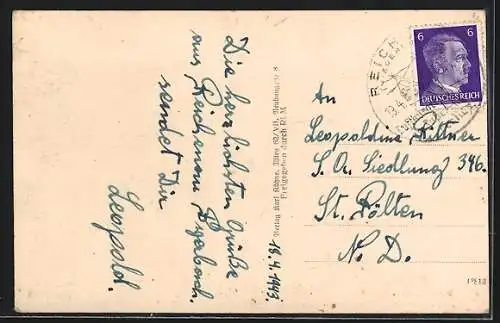 Die herzlichsten Grüße
aus Reichenau
sendet Dir
Leopold.
18.4.1943.
Verlag Karl Kühne, Wien 62/VII, Neubaugasse 8
Freigegeben durch RLM
REICH
6 6
DEUTSCHES REICH
An
Leopoldine
S.A. Siedlung 346.
St. Pölten
N. D.